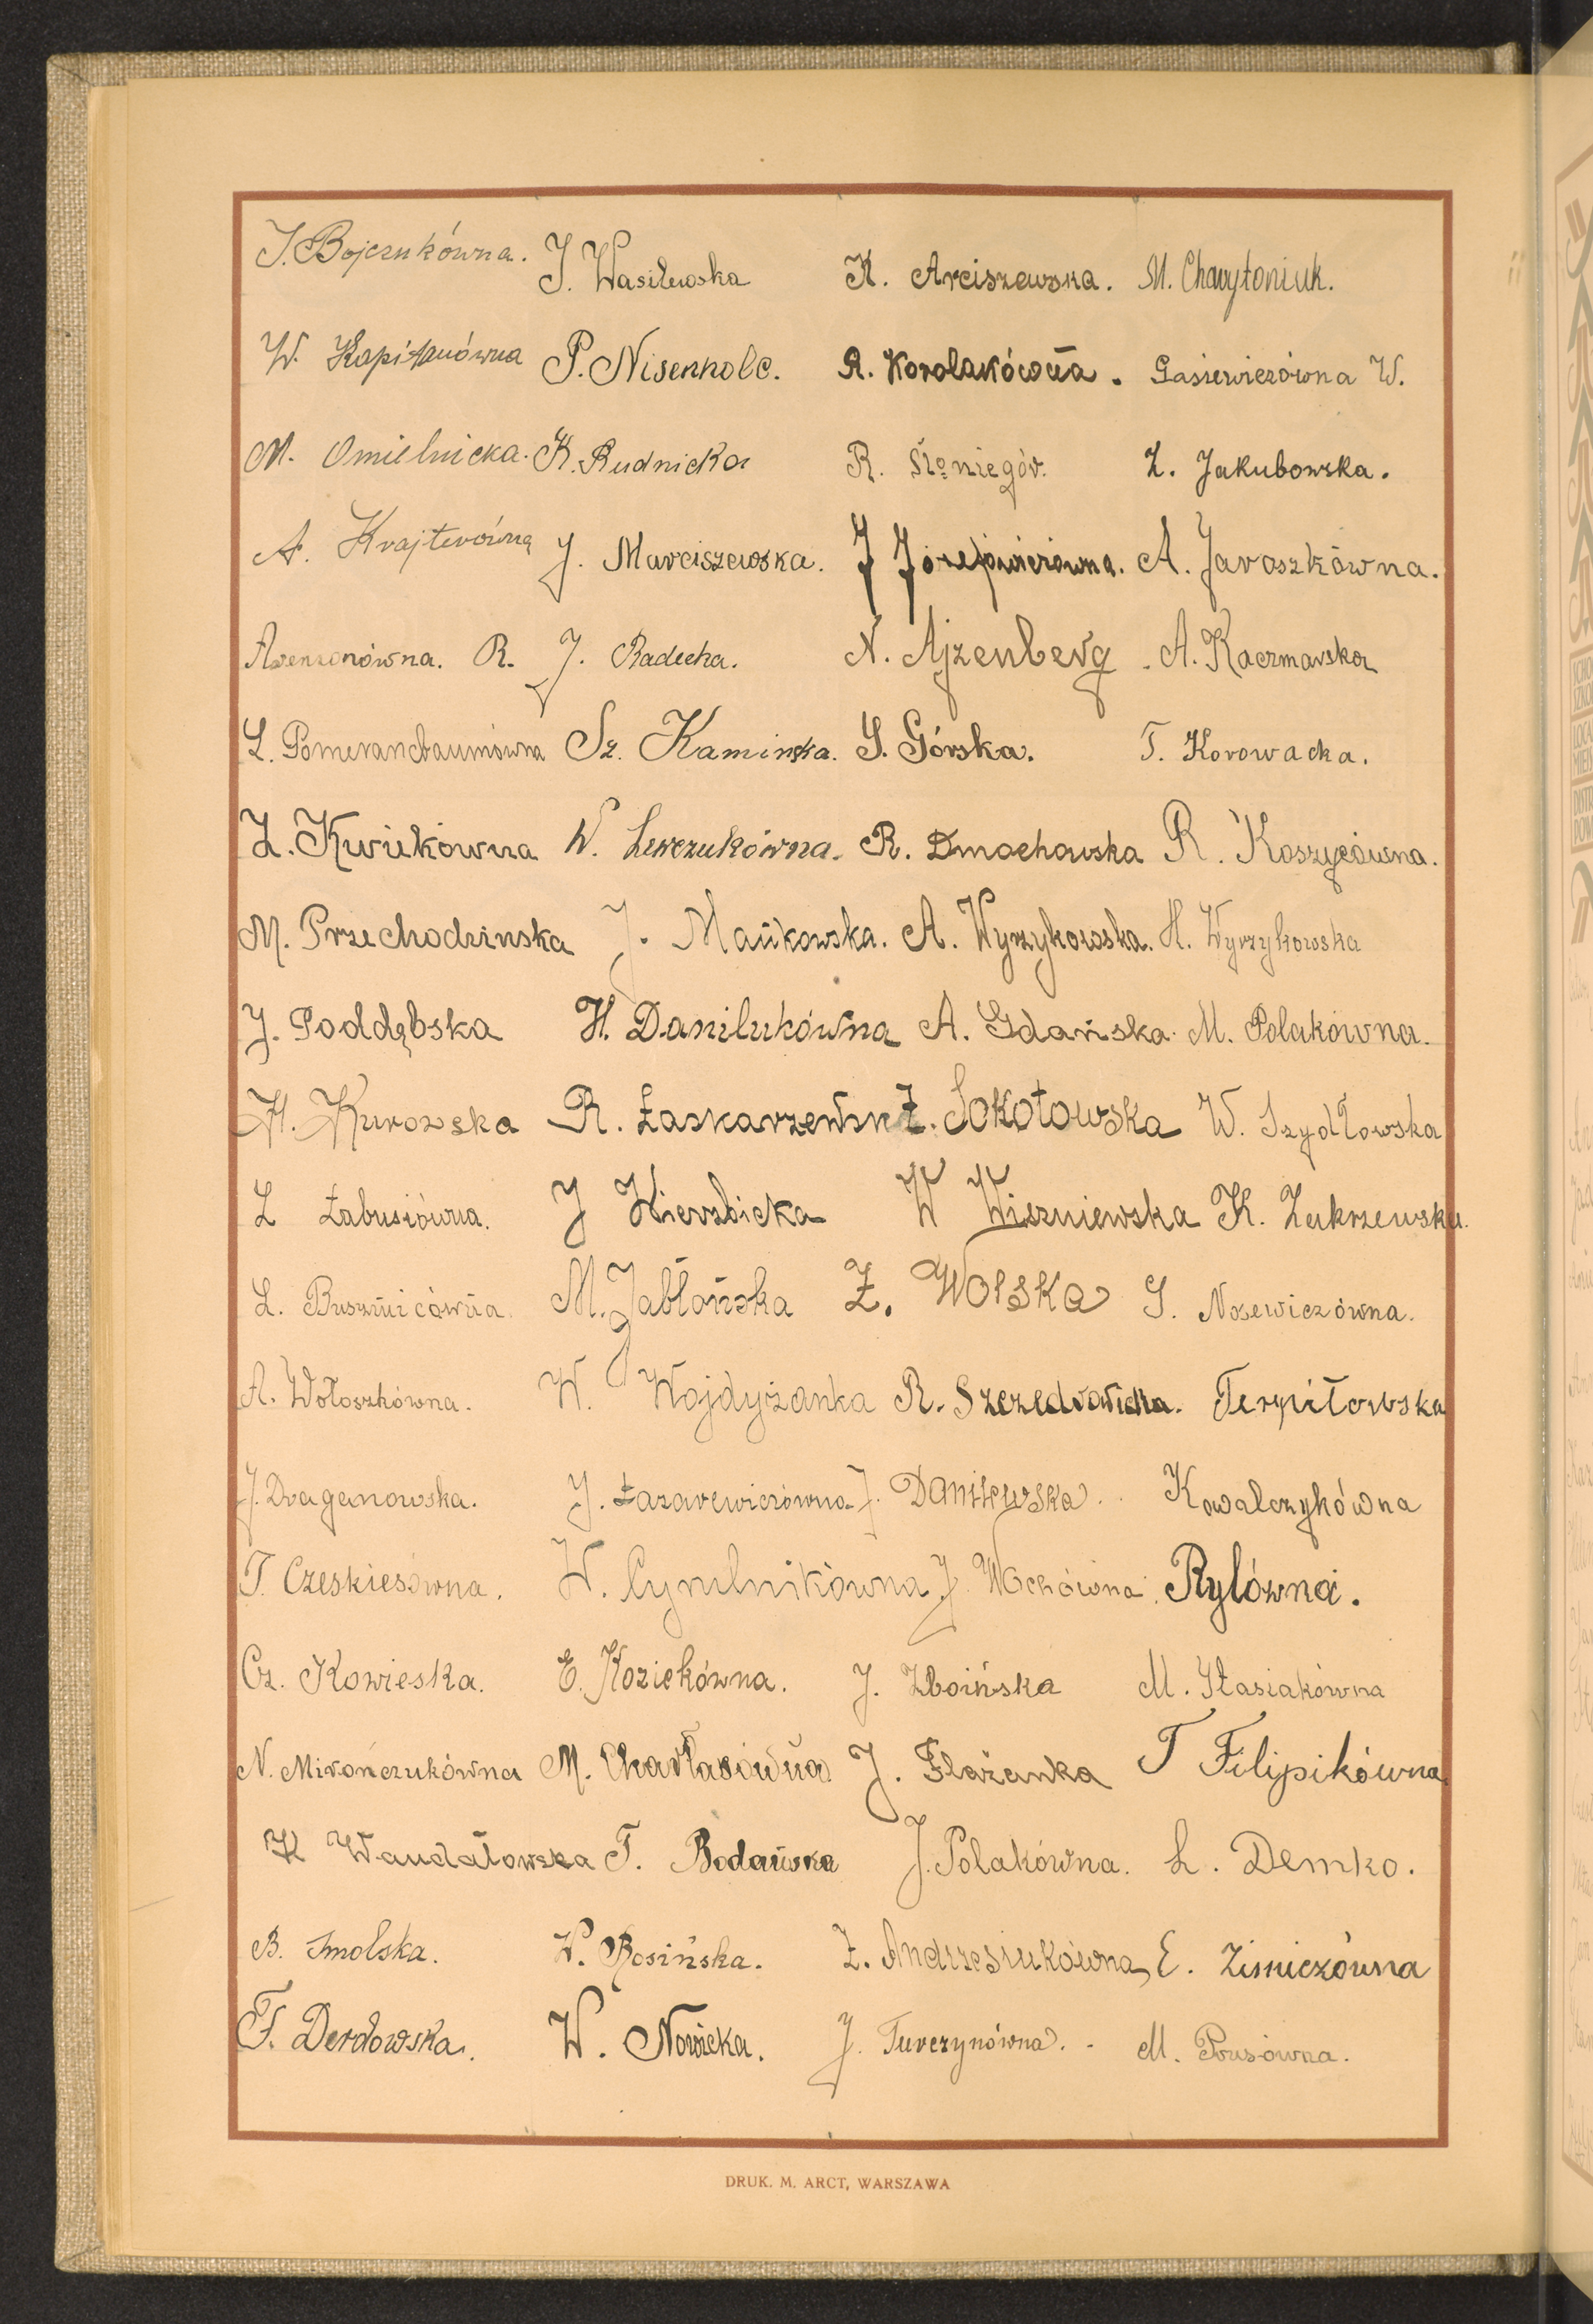 J. Bojczukówna. J. Wasilewska K. Arciszewska. M. Chwytoniuk.
W. Kapitanówna P. Nisenholc. R. Korolakówna. Gasiewiczówna W.
M. Omielnicka. K. Rudnicka R. Z. Jakubowska.
A. Krajterówna J. Marciszewska. J Józefowiczówna. A. Jaroszkówna.
R. J. Radecka. N. Ajzenberg. A. Kaczmarska
L. Pomerancbaumówna Sz. Kaminska. S. Górska. T. Korowacka.
Z. Kwiekówna W. Lewczukówna. R. Dmochowska R. Koszycówna.
M. Przechodzinska J. Mańkowska. A. Wyrzykowska. H. Wyrzykowska
J. Poddębska H. Danilukówna A. Gdańska M. Polakówna.
H. Kurowska R. Łaskarzewsk Z. Sokołowska W. Szydłowska
L Łabusiówna. J Wierzbicka W Wiszniewska K. Zakrzewska.
L. Busznicówna. M. Jabłońska Z. Wolska S. Nosewiczówna.
A. Wołoszkówna. W. Wojdyżanka R. Szczedrowicka. Terpiłowska
J. Draganowska. J. Łazarewiczówna J. Danilewska. Kowalczykówna
T. Czeskiesówna. W. Cymlnikówna J. Wochówna. Rylówna.
Cz. Kowieska. E. Koziekówna. J. Zboińska M. Stasiakówna
N. Mirończukówna M. Charłasówna J. Flażanka T Filipikówna.
K Wandałowska T. Bodańska J. Polakówna. L. Demko.
B. Smolska. W. Rosińska. Z. Andrzesiukówna E. Zimiczówna
F. Derdowska. W. Nowicka. J. Turczynówna. M. Prusówna.
DRUK. M. ARCT, WARSZAWA